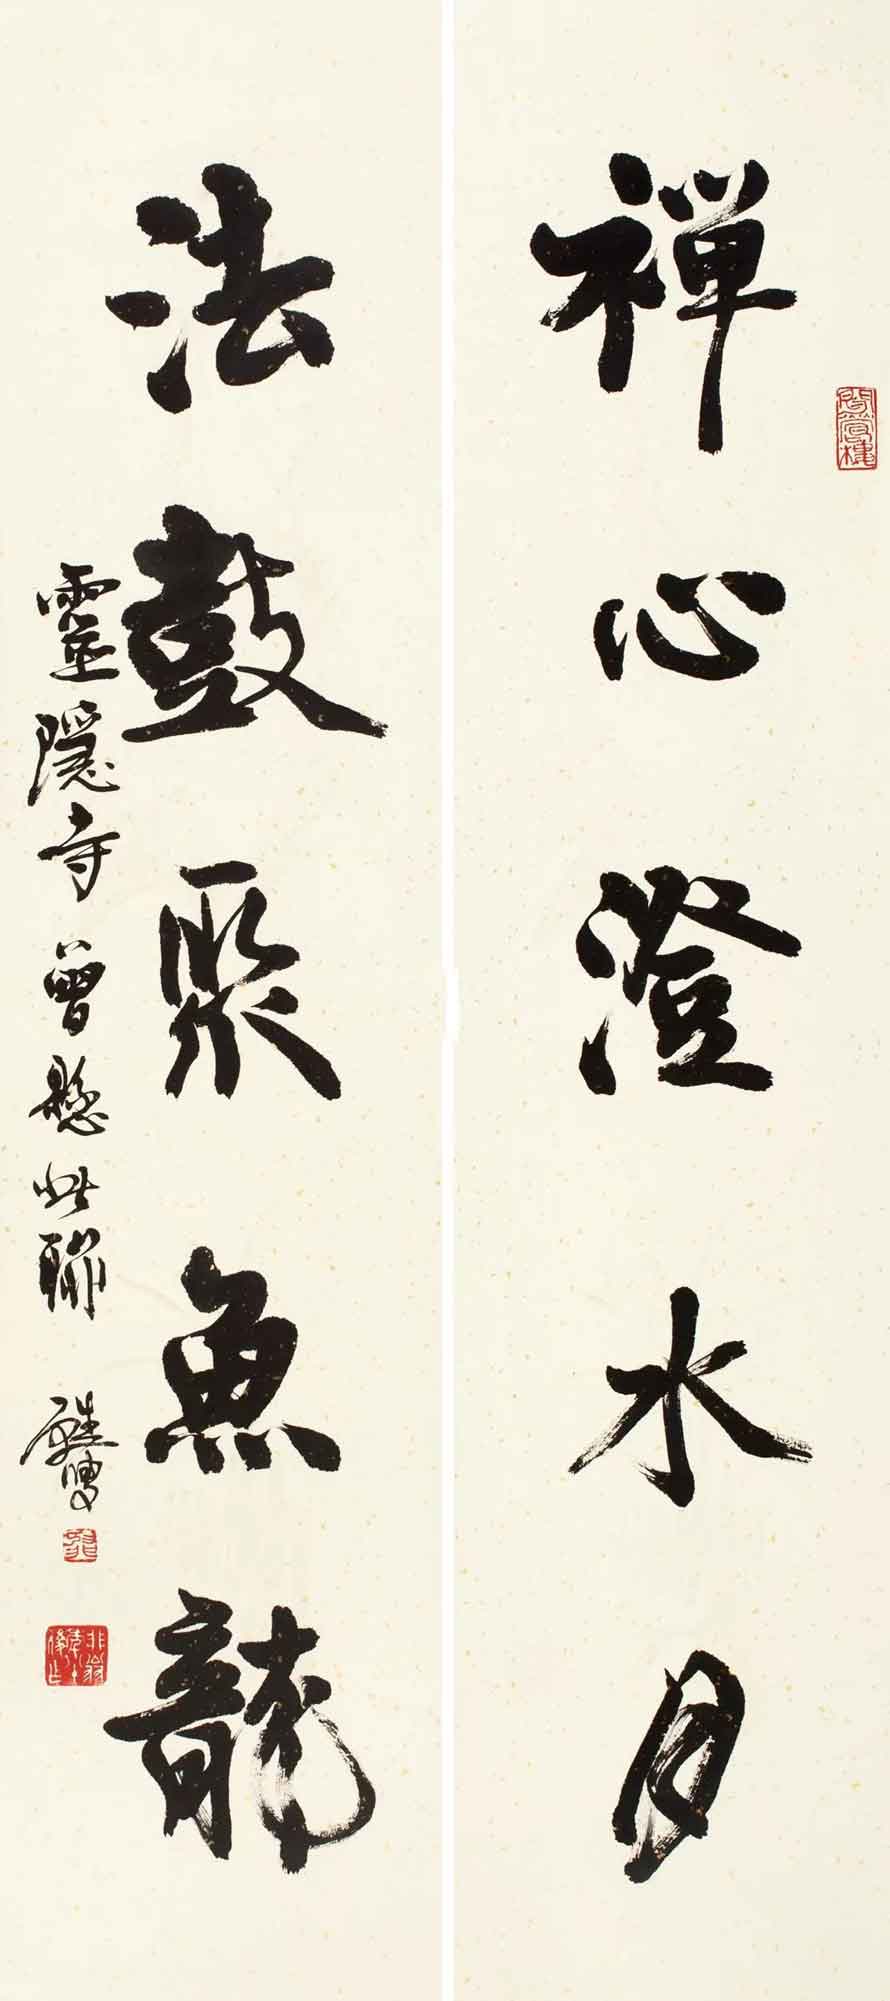 禪心澄水月
法鼓聚魚龍
靈隱寺曾懸此聯